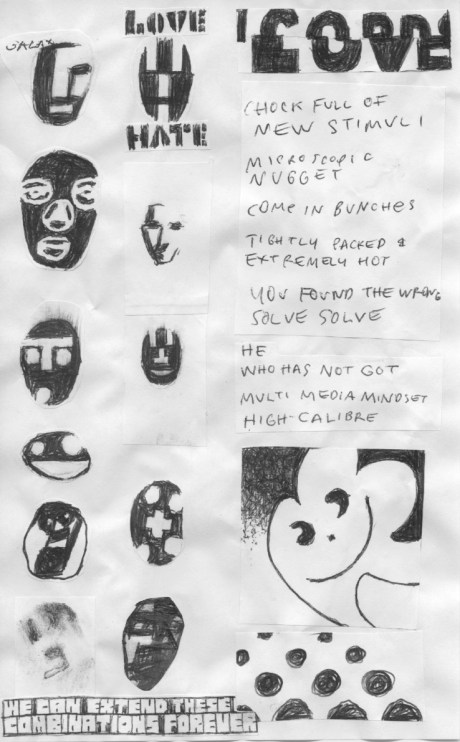 LOVE
HATE
CHOCK FULL OF
NEW STIMULI
MICROSCOPIC
NUGGET
COME IN BUNCHES
TIGHTLY PACKED &
EXTREMELY HOT
YOU FOUND THE WRONG
SOLVE SOLVE
HE
WHO HAS NOT GOT
MULTI MEDIA MINDSET
HIGH-CALIBRE
WE CAN EXTEND THESE
COMBINATIONS FOREVER